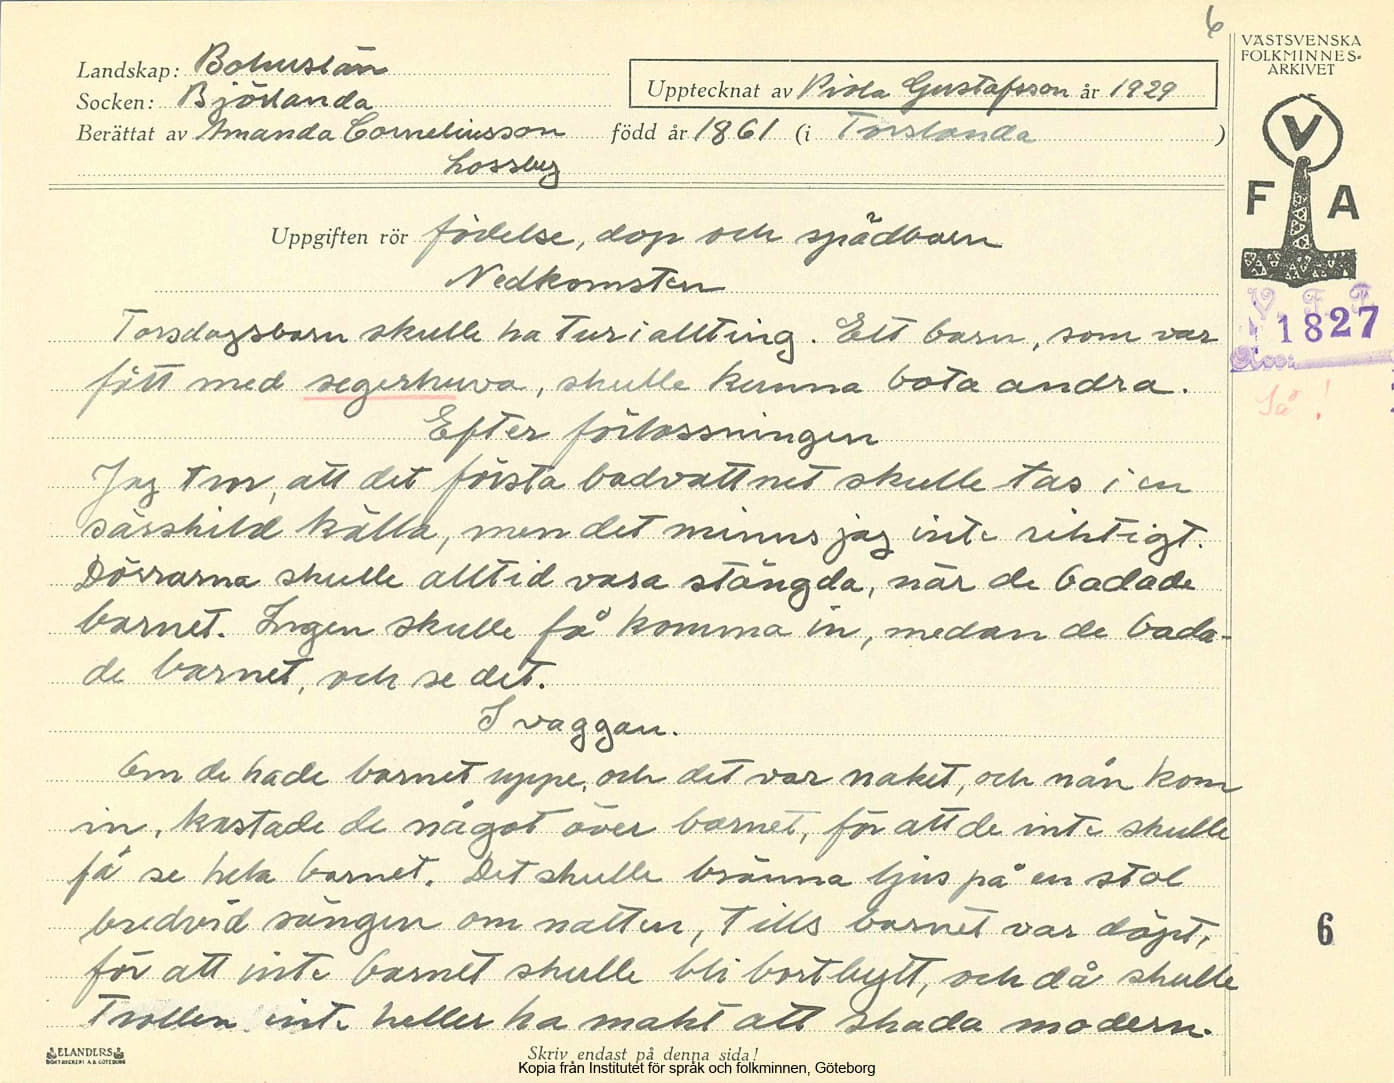 6
Landskap: Bohuslän
Socken: Björlanda
Upptecknat av Viola Gustafsson år 1929
Berättat av Amanda Corneliusson född år 1861 (i Torslanda )
Lossby
VÄSTSVENSKA
FOLKMINNES-
ARKIVET
V
F A
Uppgiften rör födelse, dop och spädbarn
Nedkomsten
V. F. F.
1827
Torsdagsbarn skulle ha tur i allting. Ett barn, som var
fött med segerhuva, skulle kunna bota andra.
Efter förlossningen
Jag tror, att det första badvattnet skulle tas i en
särskild källa, men det minns jag inte riktigt.
Dörrarna skulle alltid vara stängda, när de badade
barnet. Ingen skulle få komma in, medan de bada-
de barnet, och se det.
I vaggan.
Om de hade barnet uppe, och det var naket, och nån kom
in, kastade de något över barnet, för att de inte skulle
få se hela barnet. Det skulle bränna ljus på en stol
bredvid sängen om natten, tills barnet var döpt,
för att inte barnet skulle bli bortbytt, och då skulle
trollen inte heller ha makt att skada modern.
6
ELANDERS
BOKTRYCKERI A.B. GÖTEBORG
Skriv endast på denna sida!
Kopia från Institutet för språk och folkminnen, Göteborg